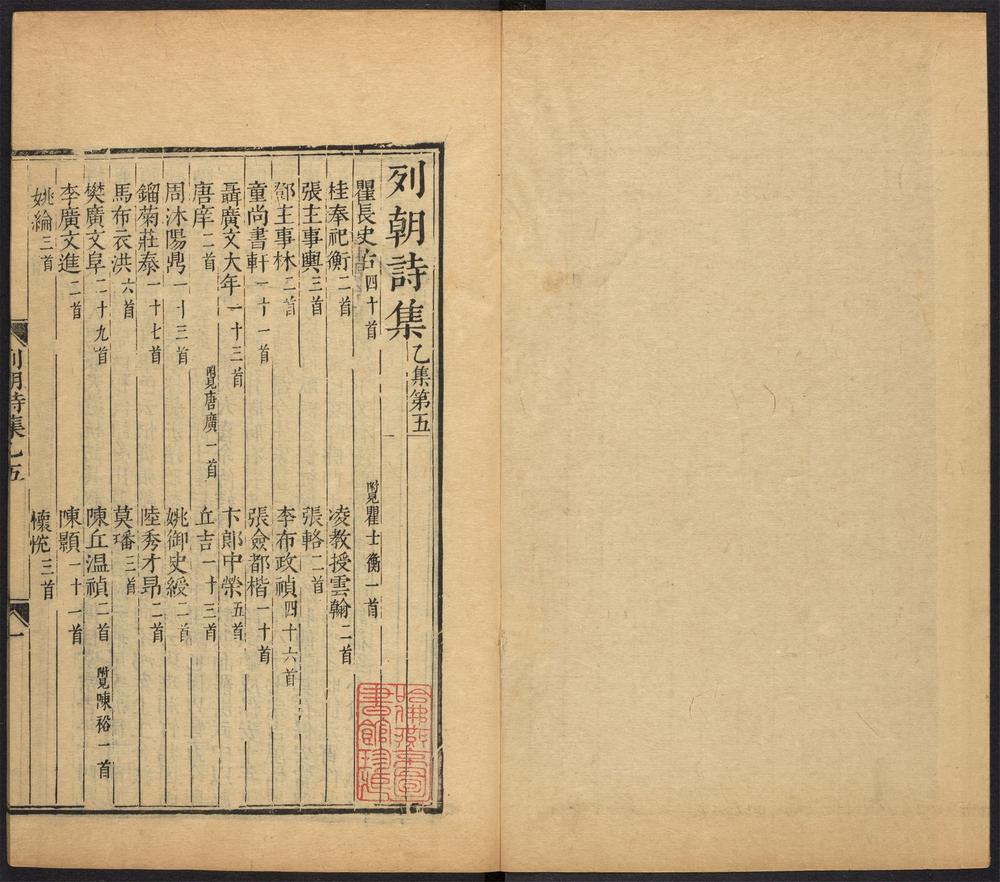 列朝詩集乙集第五
瞿長史佑四十首 附見瞿士衡一首
桂奉祀衡二首 凌教授雲翰二首
張主事輿三首 張輅一首
鄧主事林二首 李布政禎四十六首
童尚書軒一十一首 張僉都楷一十首
聶廣文大年一十三首 卞郎中榮五首
唐庠二首 附見唐廣一首 丘吉一十三首
周沐陽鼎一十三首 姚御史綬二首
鎦菊莊泰一十七首 陸秀才昂二首
馬布衣洪六首 莫璠三首
樊廣文阜二十九首 陳丘温禎二首 附見陳裕一首
李廣文進二首 陳顥一十一首
姚綸三首 懷悅三首
列朝詩集乙五
一
哈佛燕京圖書館珍藏